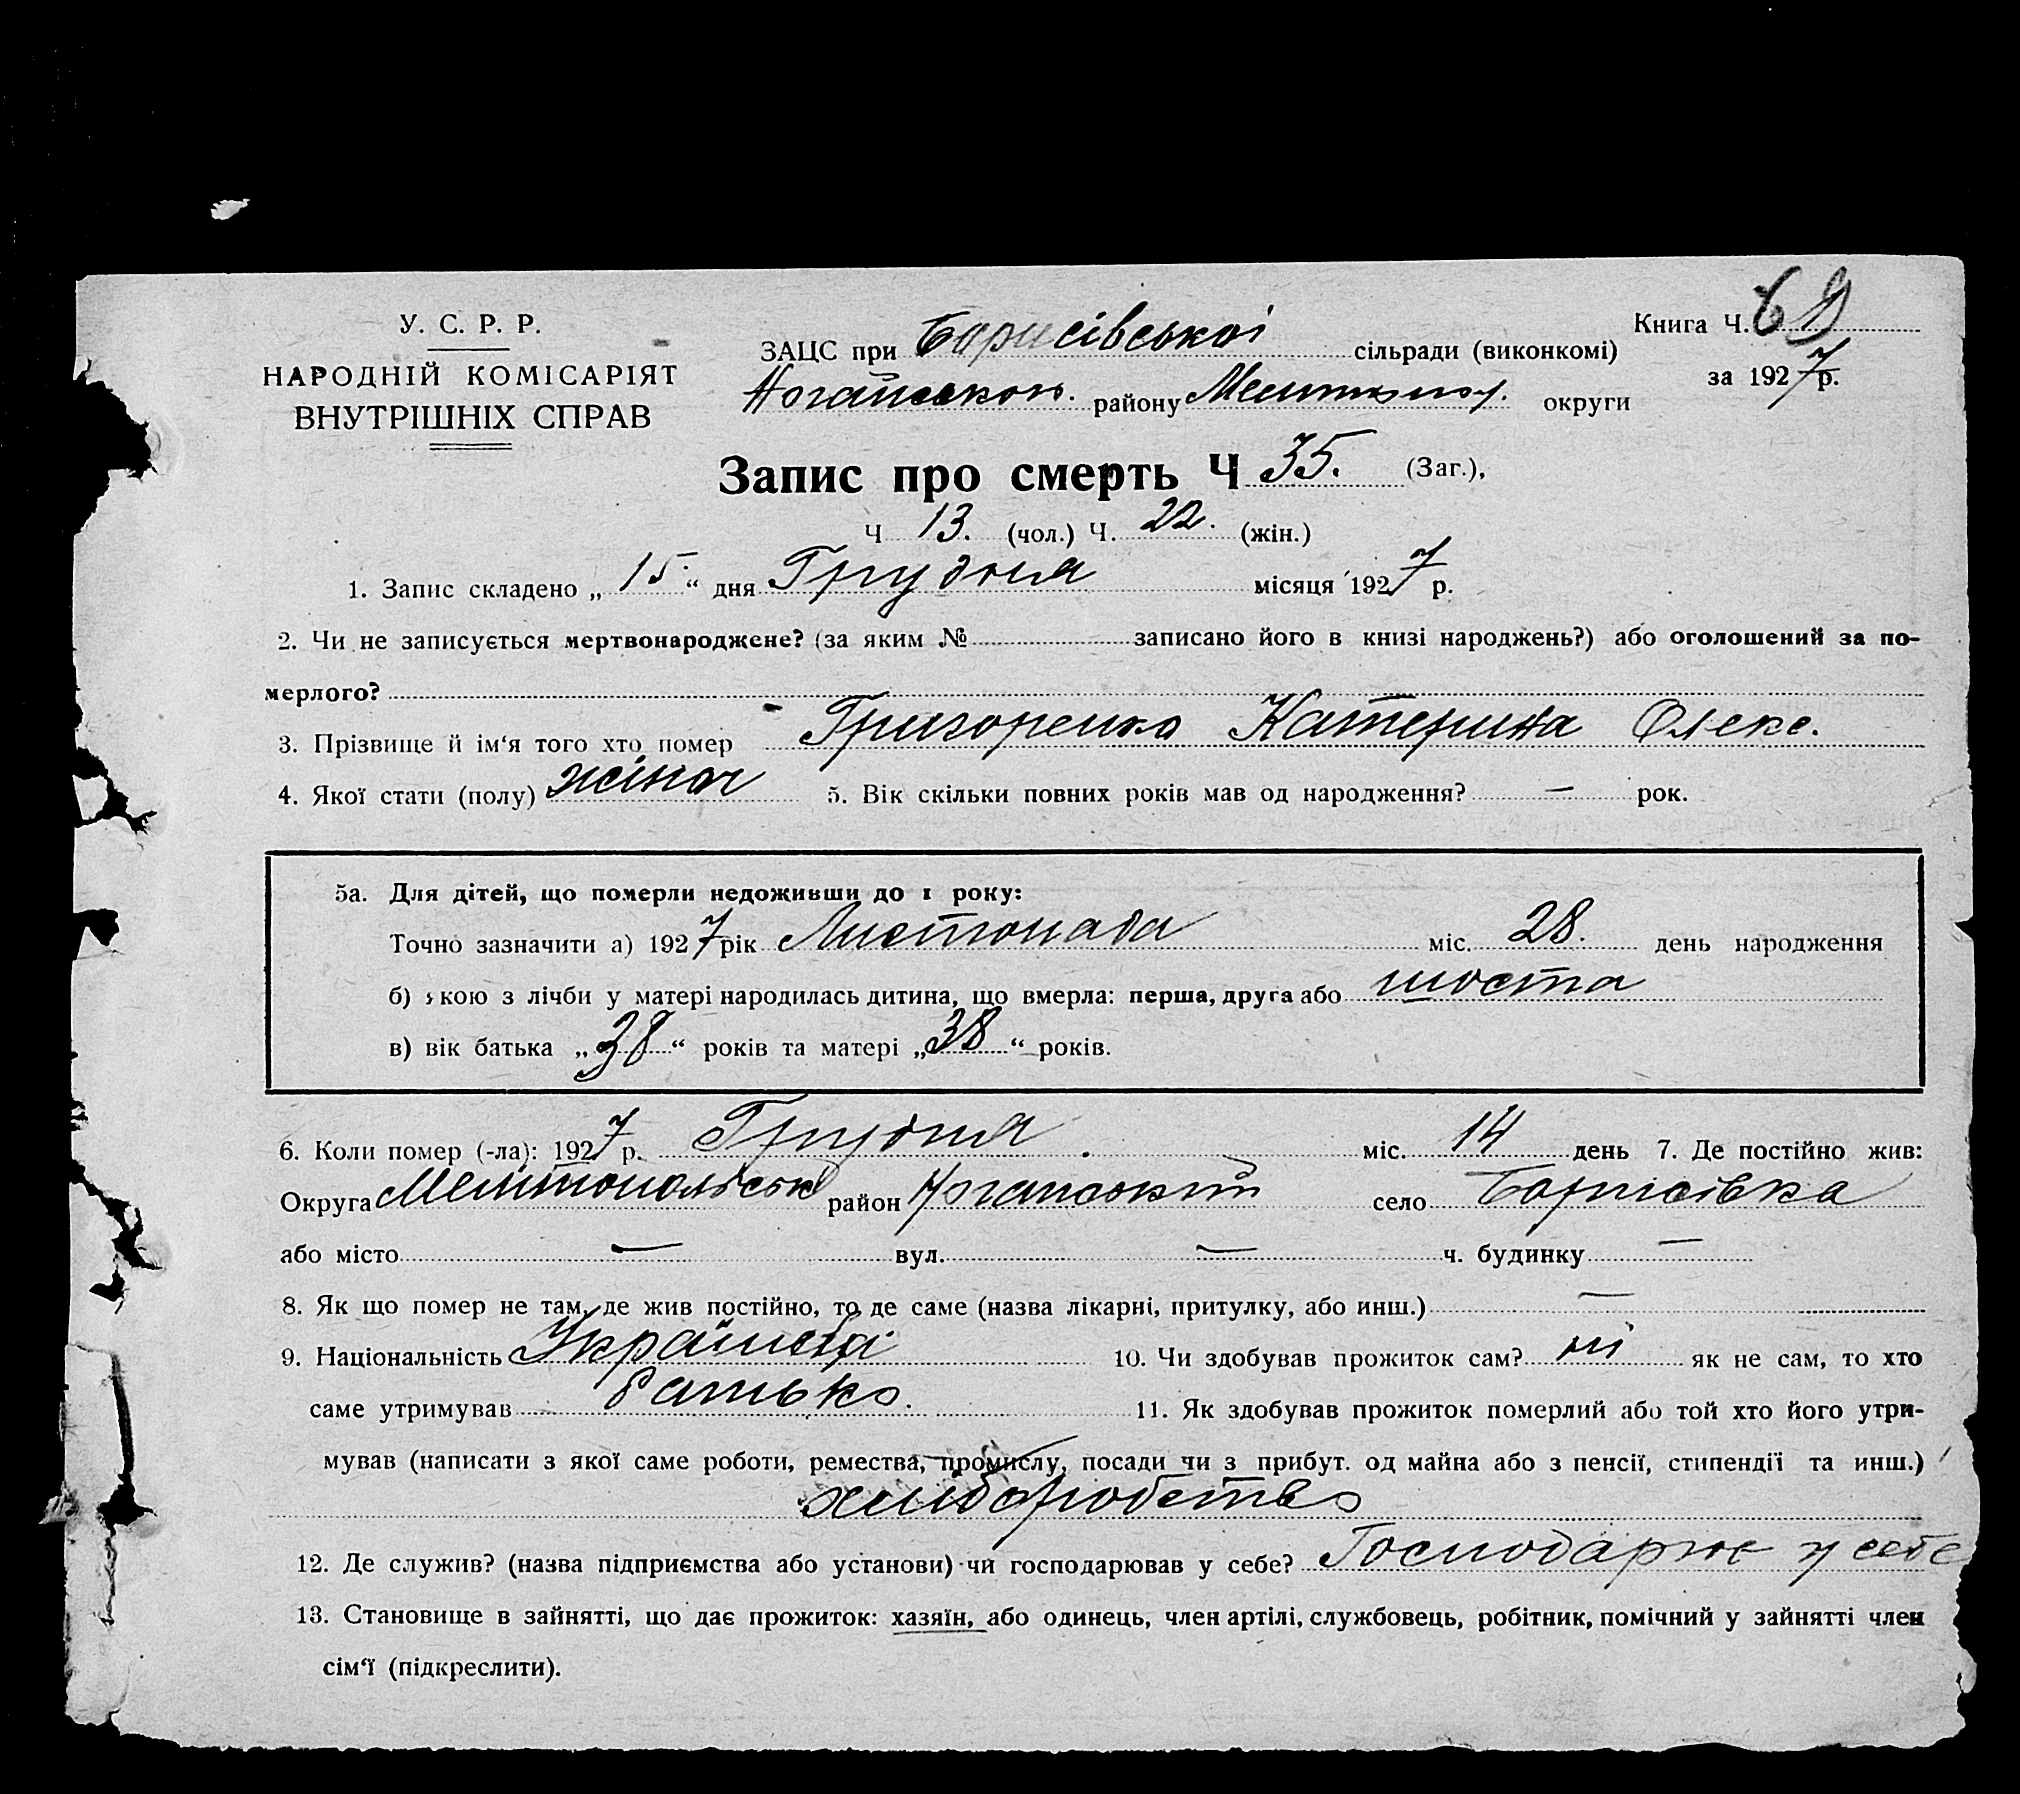 У. С. Р. Р.
НАРОДНІЙ КОМІСАРІЯТ
ВНУТРІШНІХ СПРАВ
Книга Ч. 69
за 1927 р.
ЗАЦС при Борисівської сільради (виконкомі)
Ногайськог. району Мелитопол. округи
Запис про смерть Ч 35. (Заг.),
Ч 13. (чол.) Ч. 22. (жін.)
1. Запис складено „ 15 “ дня Грудня місяця 1927 р.
2. Чи не записується мертвонароджене? (за яким № записано його в книзі народжень?) або оголошений за по-
мерлого?
3. Прізвище й ім‘я того хто помер Григоренко Катерина Олекс.
4. Якої стати (полу) жіноч 5. Вік скільки повних років мав од народження? — рок.
5а. Для дітей, що померли недоживши до 1 року:
Точно зазначити а) 1927 рік Листопада міс. 28. день народження
б) якою з лічби у матері народилась дитина, що вмерла: перша, друга або шоста
в) вік батька „38“ років та матері „38“ років.
6. Коли помер (-ла): 1927 р. Грудня міс. 14 день 7. Де постійно жив:
Округа Мелітопольськ район Ногайський село Борисівка
або місто — вул. — ч. будинку —
8. Як що помер не там, де жив постійно, то де саме (назва лікарні, притулку, або инш.) —
9. Національність 10. Чи здобував прожиток сам? ні як не сам, то хто
саме утримував батько. 11. Як здобував прожиток померлий або той хто його утри-
мував (написати з якої саме роботи, ремества, промислу, посади чи з прибут. од майна або з пенсії, стипендії та инш.)
хліборобство
12. Де служив? (назва підприємства або установи) чи господарював у себе? Господарює у себе
13. Становище в зайнятті, що дає прожиток: хазяїн, або одинець, член артілі, службовець, робітник, помічний у зайнятті член
сім‘ї (підкреслити).